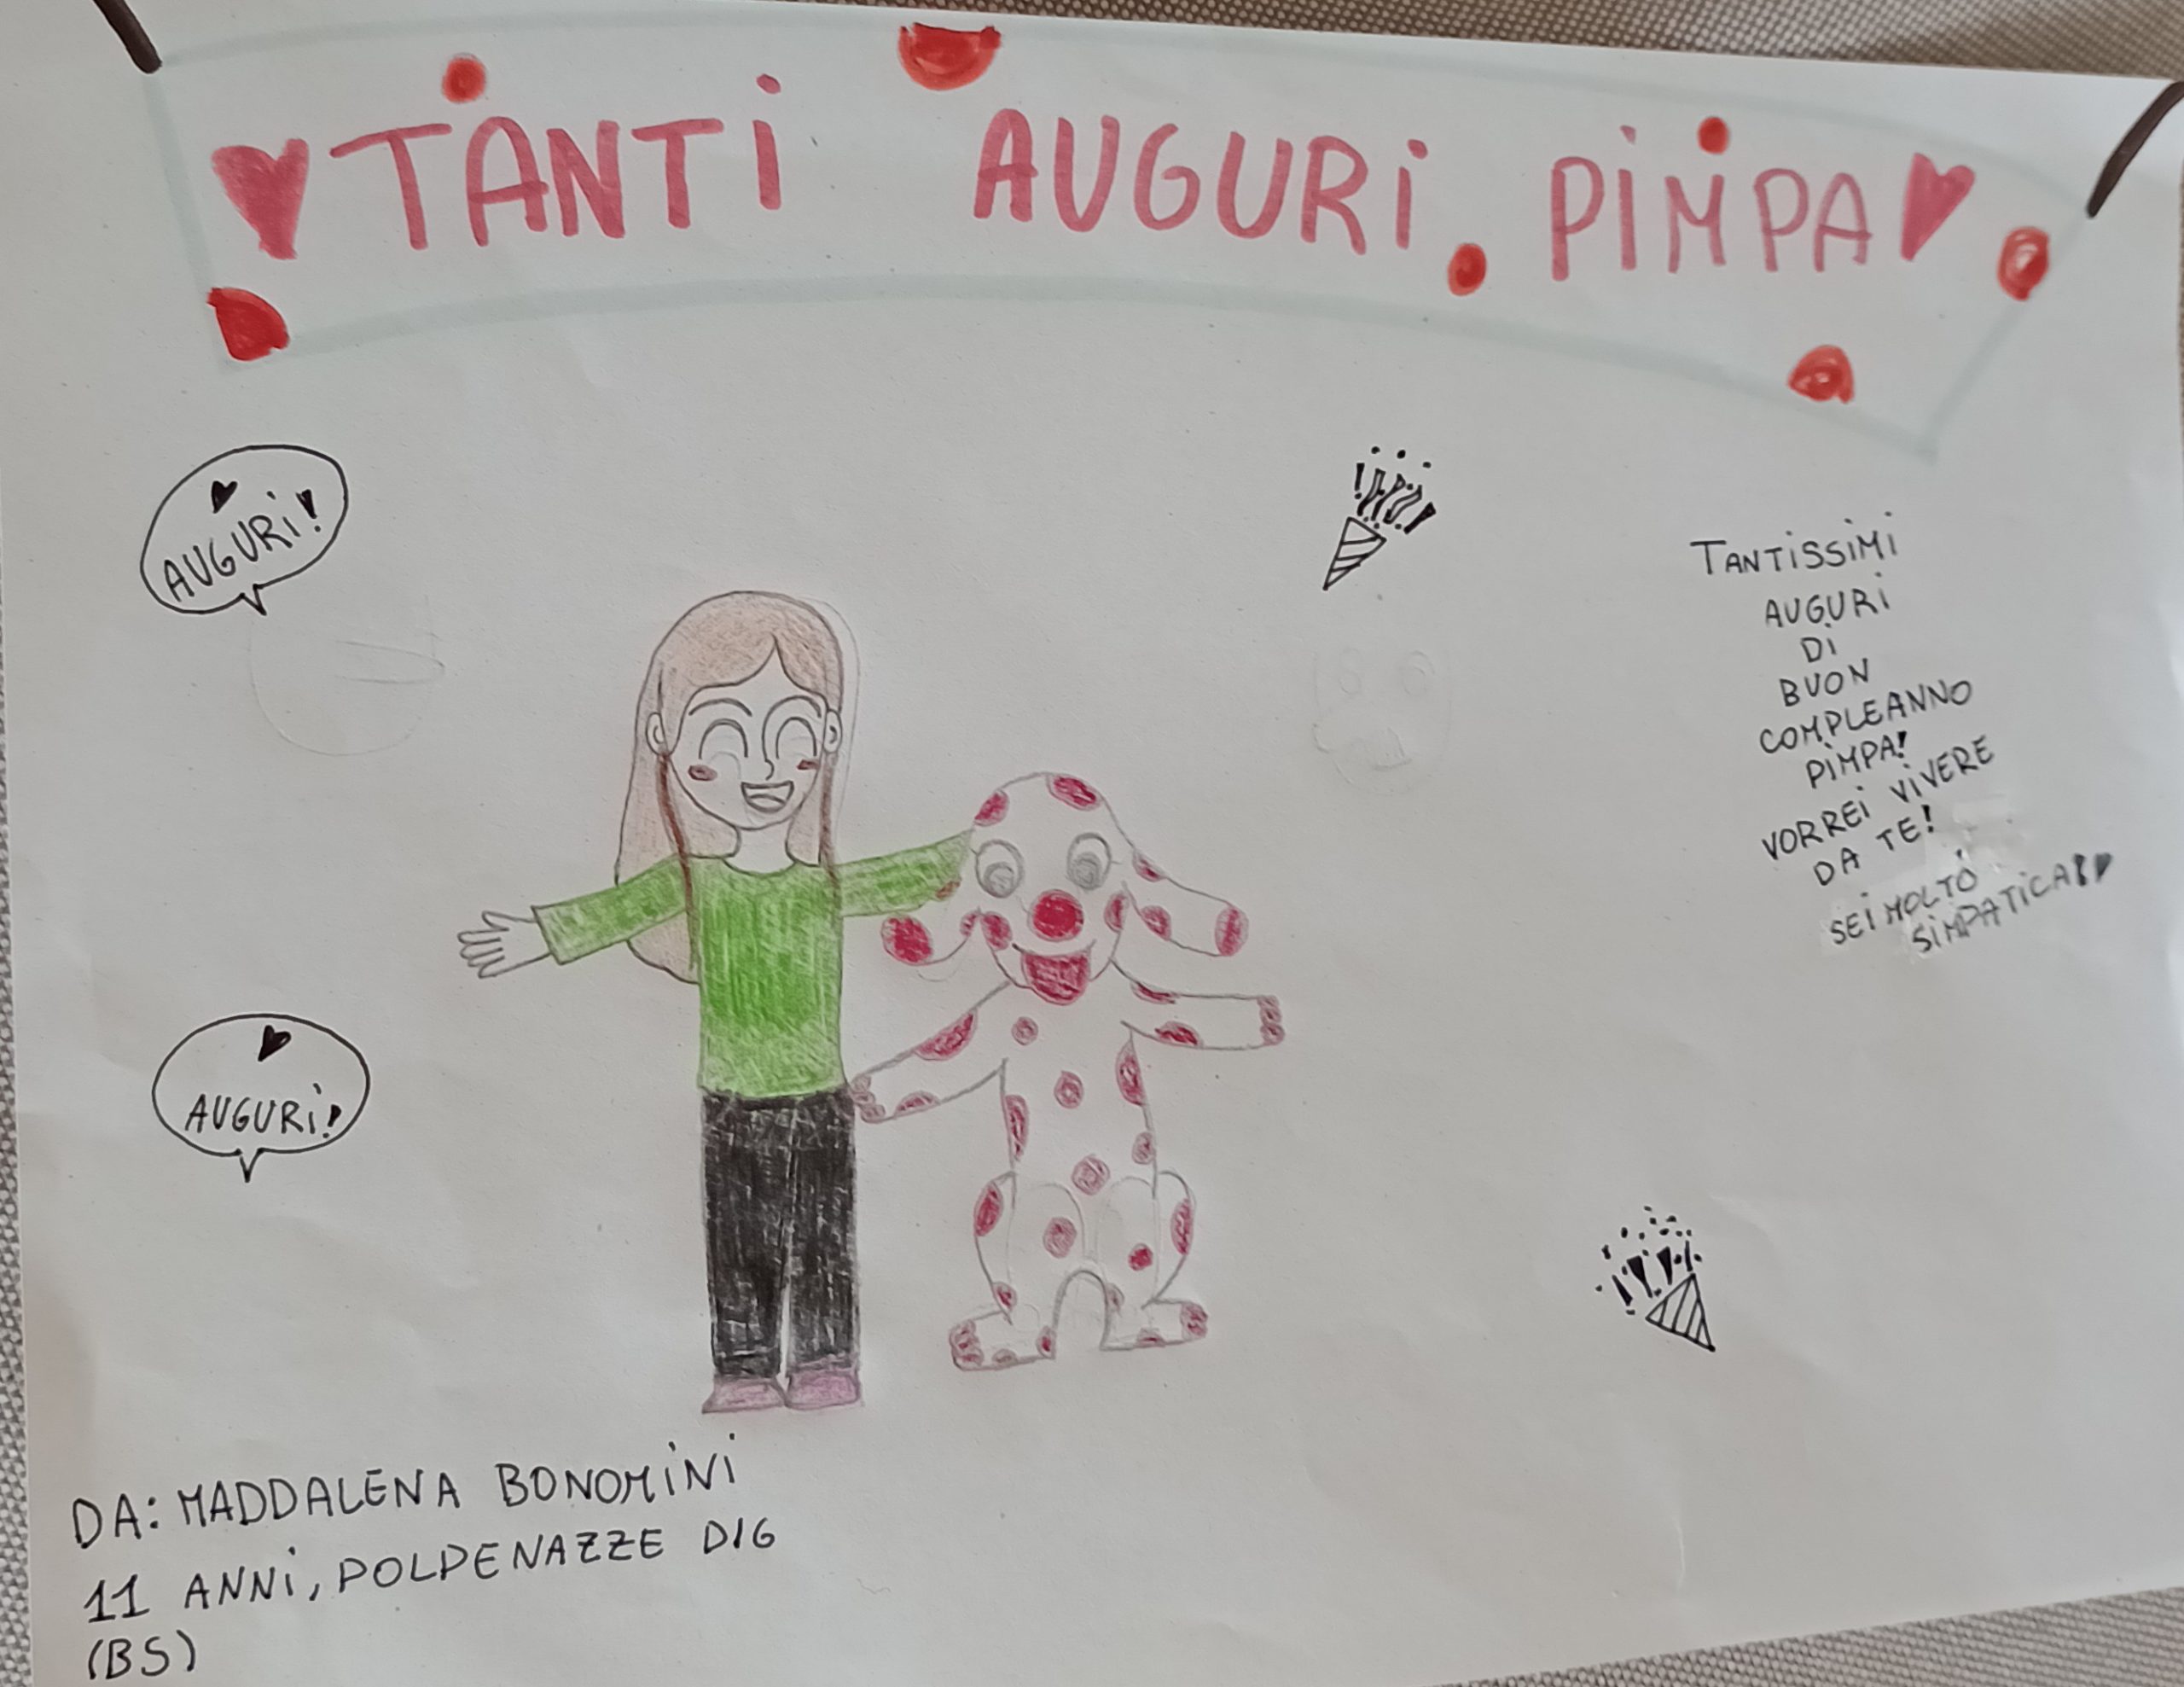 ♥TANTi AUGURi PiMPA♥
♥
AUGURi!
TANTiSSiMi
AUGURi
Di
BUON
COMPLEANNO
PiMPA!
VORREi ViVERE
DA TE!
SEi MOLTO
SiMPATiCA!♥
♥
AUGURi!
DA: MADDALENA BONOMiNi
11 ANNi, POLPENAZZE D/G
(BS)